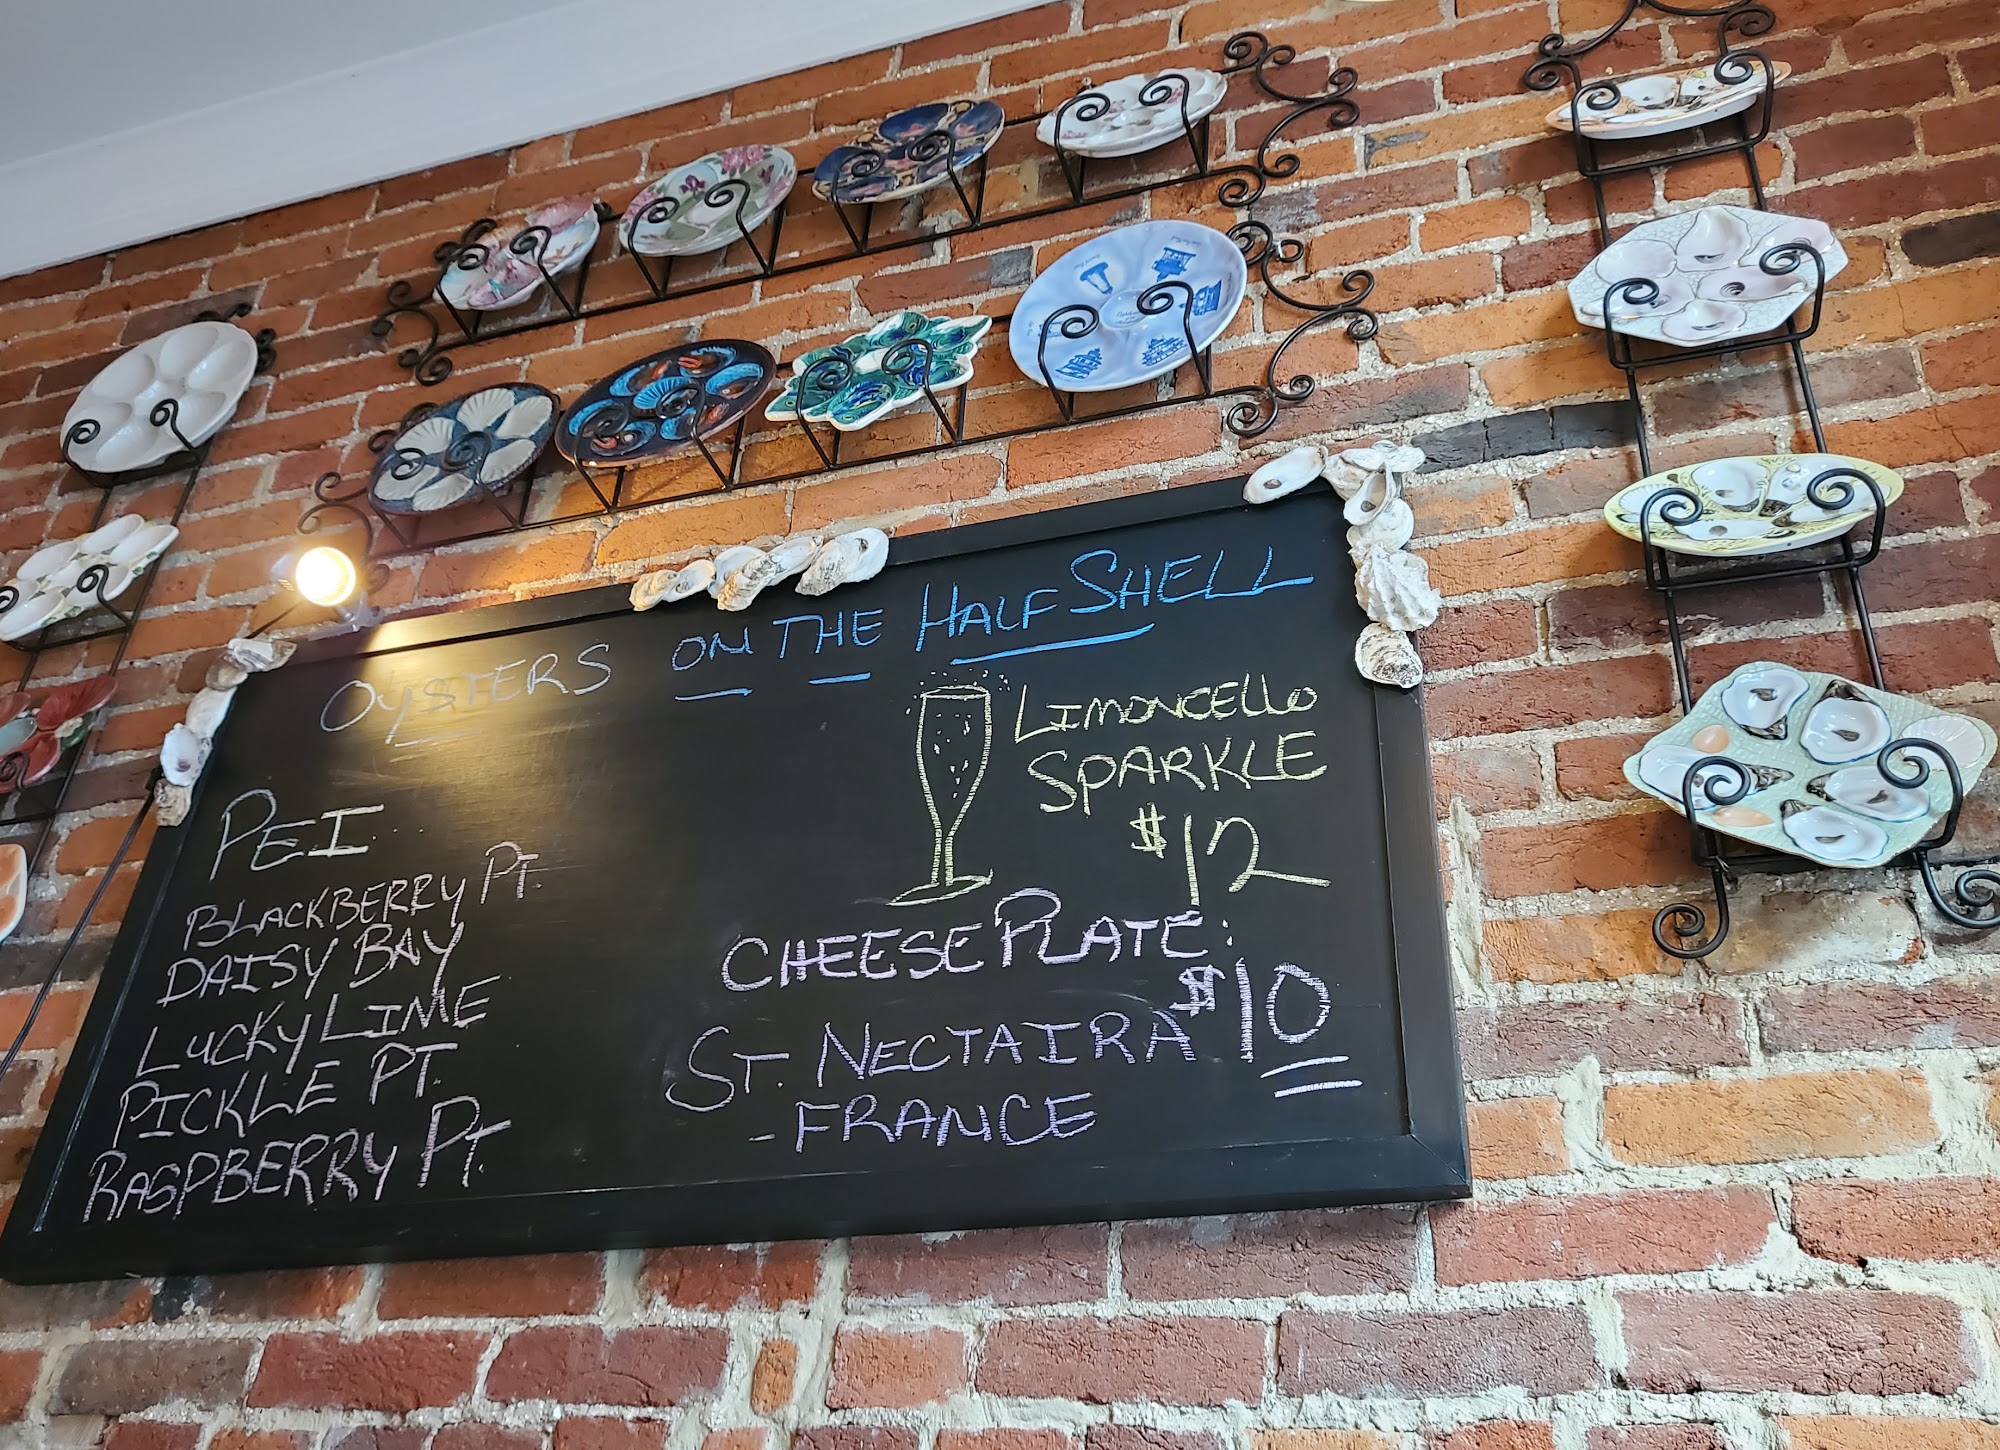 OYSTERS ON THE HALF SHELL
PEI
BLACKBERRY PT.
DAISY BAY
LUCKY LIME
PICKLE PT.
RASPBERRY PT.
LIMONCELLO
SPARKLE
$12
CHEESE PLATE:
$10
ST. NECTAIRA
- FRANCE